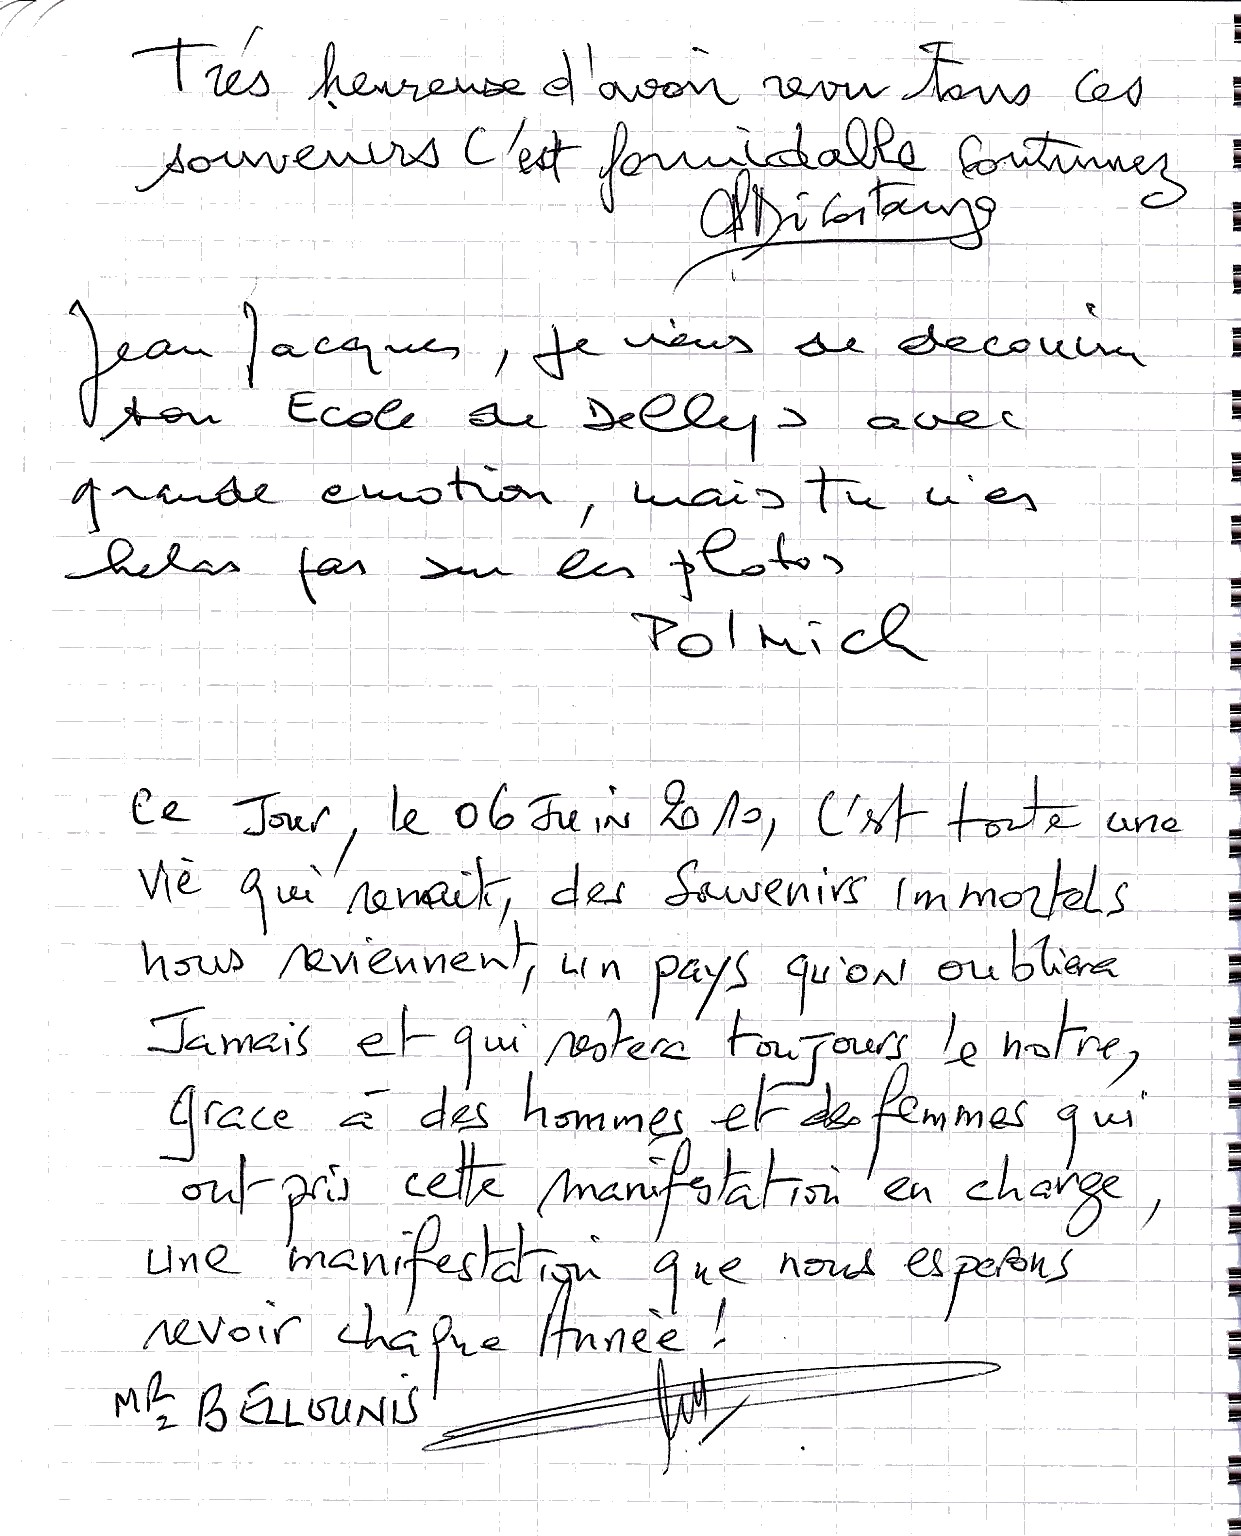 Trés heureuse d'avoir revu tous ces
souvenirs C'est formidable Continuez
Jean Jacques, je viens de decouvrir
ton Ecole de Dellys avec
grande emotion, mais tu n'es
helas pas sur les photos
Polmich
Ce Jour, le 06 Juin 2010, C'est toute une
Vie qui renait, des Souvenirs Immortels
nous reviennent, un pays qu'on oubliera
Jamais et qui restera toujours le notre,
Grace à des hommes et des femmes qui
ont pris cette manifestation en charge,
une manifestation que nous esperons
revoir chaque Année !
MR BELLOUNIS